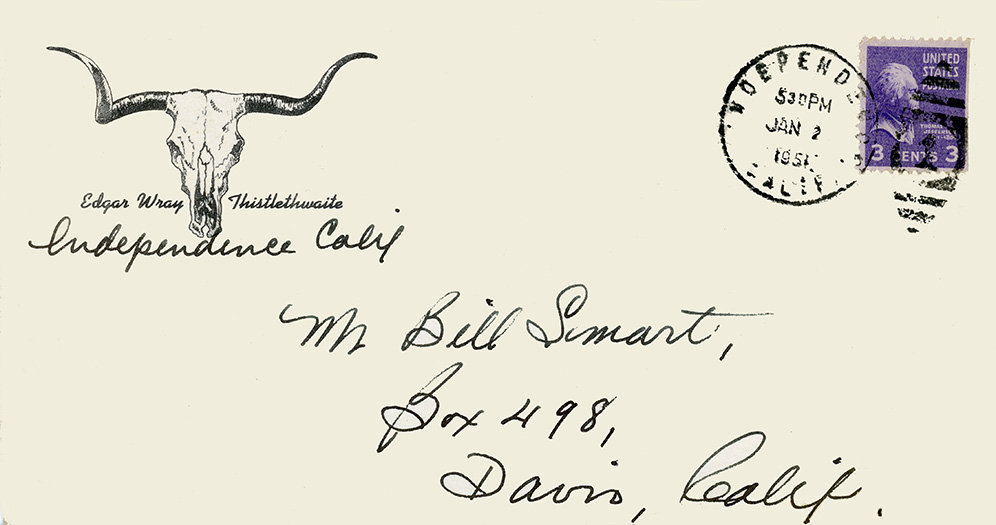 Edgar Wray Thistlethwaite
Independence Calif
INDEPENDENCE
530PM
JAN 2
1951
CALIF.
UNITED
STATES
POSTAGE
THOMAS
JEFFERSON
3 CENTS 3
Mr Bill Smart,
Box 498,
Davis, Calif.